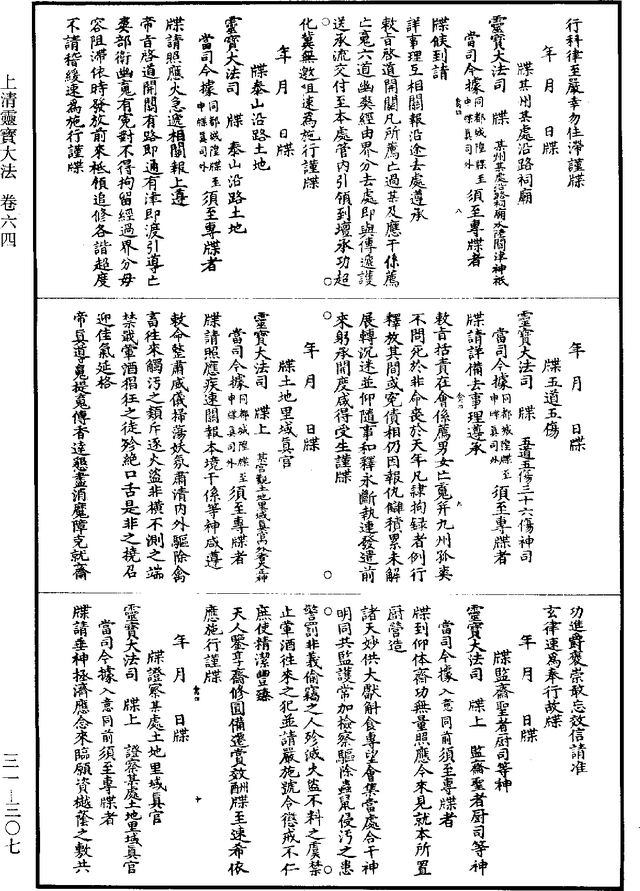 行科律至嚴幸勿住滯謹牒
年　月　日牒
牒某州某處沿路祠廟
靈寶大法司　牒　某州某處沿路祠廟水陸關津神祇
當司今據同都城隍牒至申牒真司外須至專牒者
牒候到請
詳事理互相關報沿途去處遵承
敕旨啓道開闢凡所薦亡過某及應干係薦
亡䰟六道幽奱經由界分去處即與傳逓護
送承流交付至本處管內引領到壇承功超
化冀無邀咀速為施行謹牒
年　月　日牒
牒泰山沿路土地
靈寶大法司　牒　泰山沿路土地
當司今據同都城隍牒至申牒真司外須至專牒者
牒請照應火急遞相關報上遵
帝旨啓道開關有路即通有津即渡引導亡
婁部衛幽䰟有寃對不得拘留經過界分毋
容阻滯依時發放前來秪領追修各諧超度
不請稽緩速為施行謹牒
年　月　日牒
牒五道五傷
靈寶大法司　牒　五道五傷三十六傷神司
當司今據同都城隍牒至申牒真司外須至專牒者
牒請詳備去事理遵承
敕旨拮責在會係薦男女亡䰟并九州孤类
不問死於非命喪於天年凡隷拘録者例行
釋放其間或寃債相仍因報仇讎積累未解
展轉沉迷並仰隨事和釋永斷執連發遣前
來躬承開度咸得受生謹牒
年　月　日牒
牒土地里域真官
靈寶大法司　牒上　某宮觀土地里域真官內外香火正神
當司今據同都城隍牒至申牒真司外須至專牒者
牒請照應疾速關報本境干係等神咸遵
敕命整肅威儀掃蕩妖氛肅清內外驅除禽
畜往來觸污之類斥逐火盜非橫不測之端
禁戢葷酒猖狂之徒殄絕口舌是非之撓召
迎佳氣延格
帝真導䰟提䰟傳者達懇盡消魔障克就齋
功進爵褒崇敢忘效信請准
玄律速為奉行故牒
年　月　日牒
牒監齋聖者厨司等神
靈寶大法司　牒上　監齋聖者厨司等神
當司今據入意同前須至專牒者
牒到仰体齋功無量照應今來見就本所置
厨營造
諸天妙供大獻斛食專望會集當處合干神
明同共監護常加檢察驅除蟲鼠侵污之患
警罰非義偷竊之人殄滅火盜不料之虞禁
止葷酒往來之犯並請嚴施號令懲戒不仁
庶使精潔豊臻
天人鑒享齋修圓備遷賞效酬牒至速希依
應施行謹牒
年　月　日牒
牒證察某處土地里域真官
靈寶大法司　牒上　證察某處土地里域真官
當司今據入意同前須至專牒者
牒請垂神拯濟應念來臨願資樾蔭之敷共
上清靈寶大法　卷六四
三一－三〇七